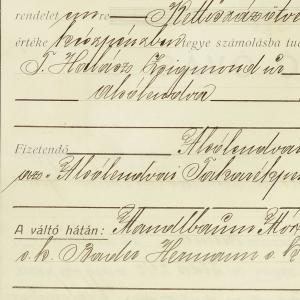 rendelet em re Kettőszázötve
értéke készpénzben vegye számolásba tud
T. Halász Zsigmond úr
Alsólendva
Fizetendő Alsólendvai
az Alsólendvai Takarékpén
A váltó hátán: Mandlbaum Mór
s. k. Bader Hermann s. k